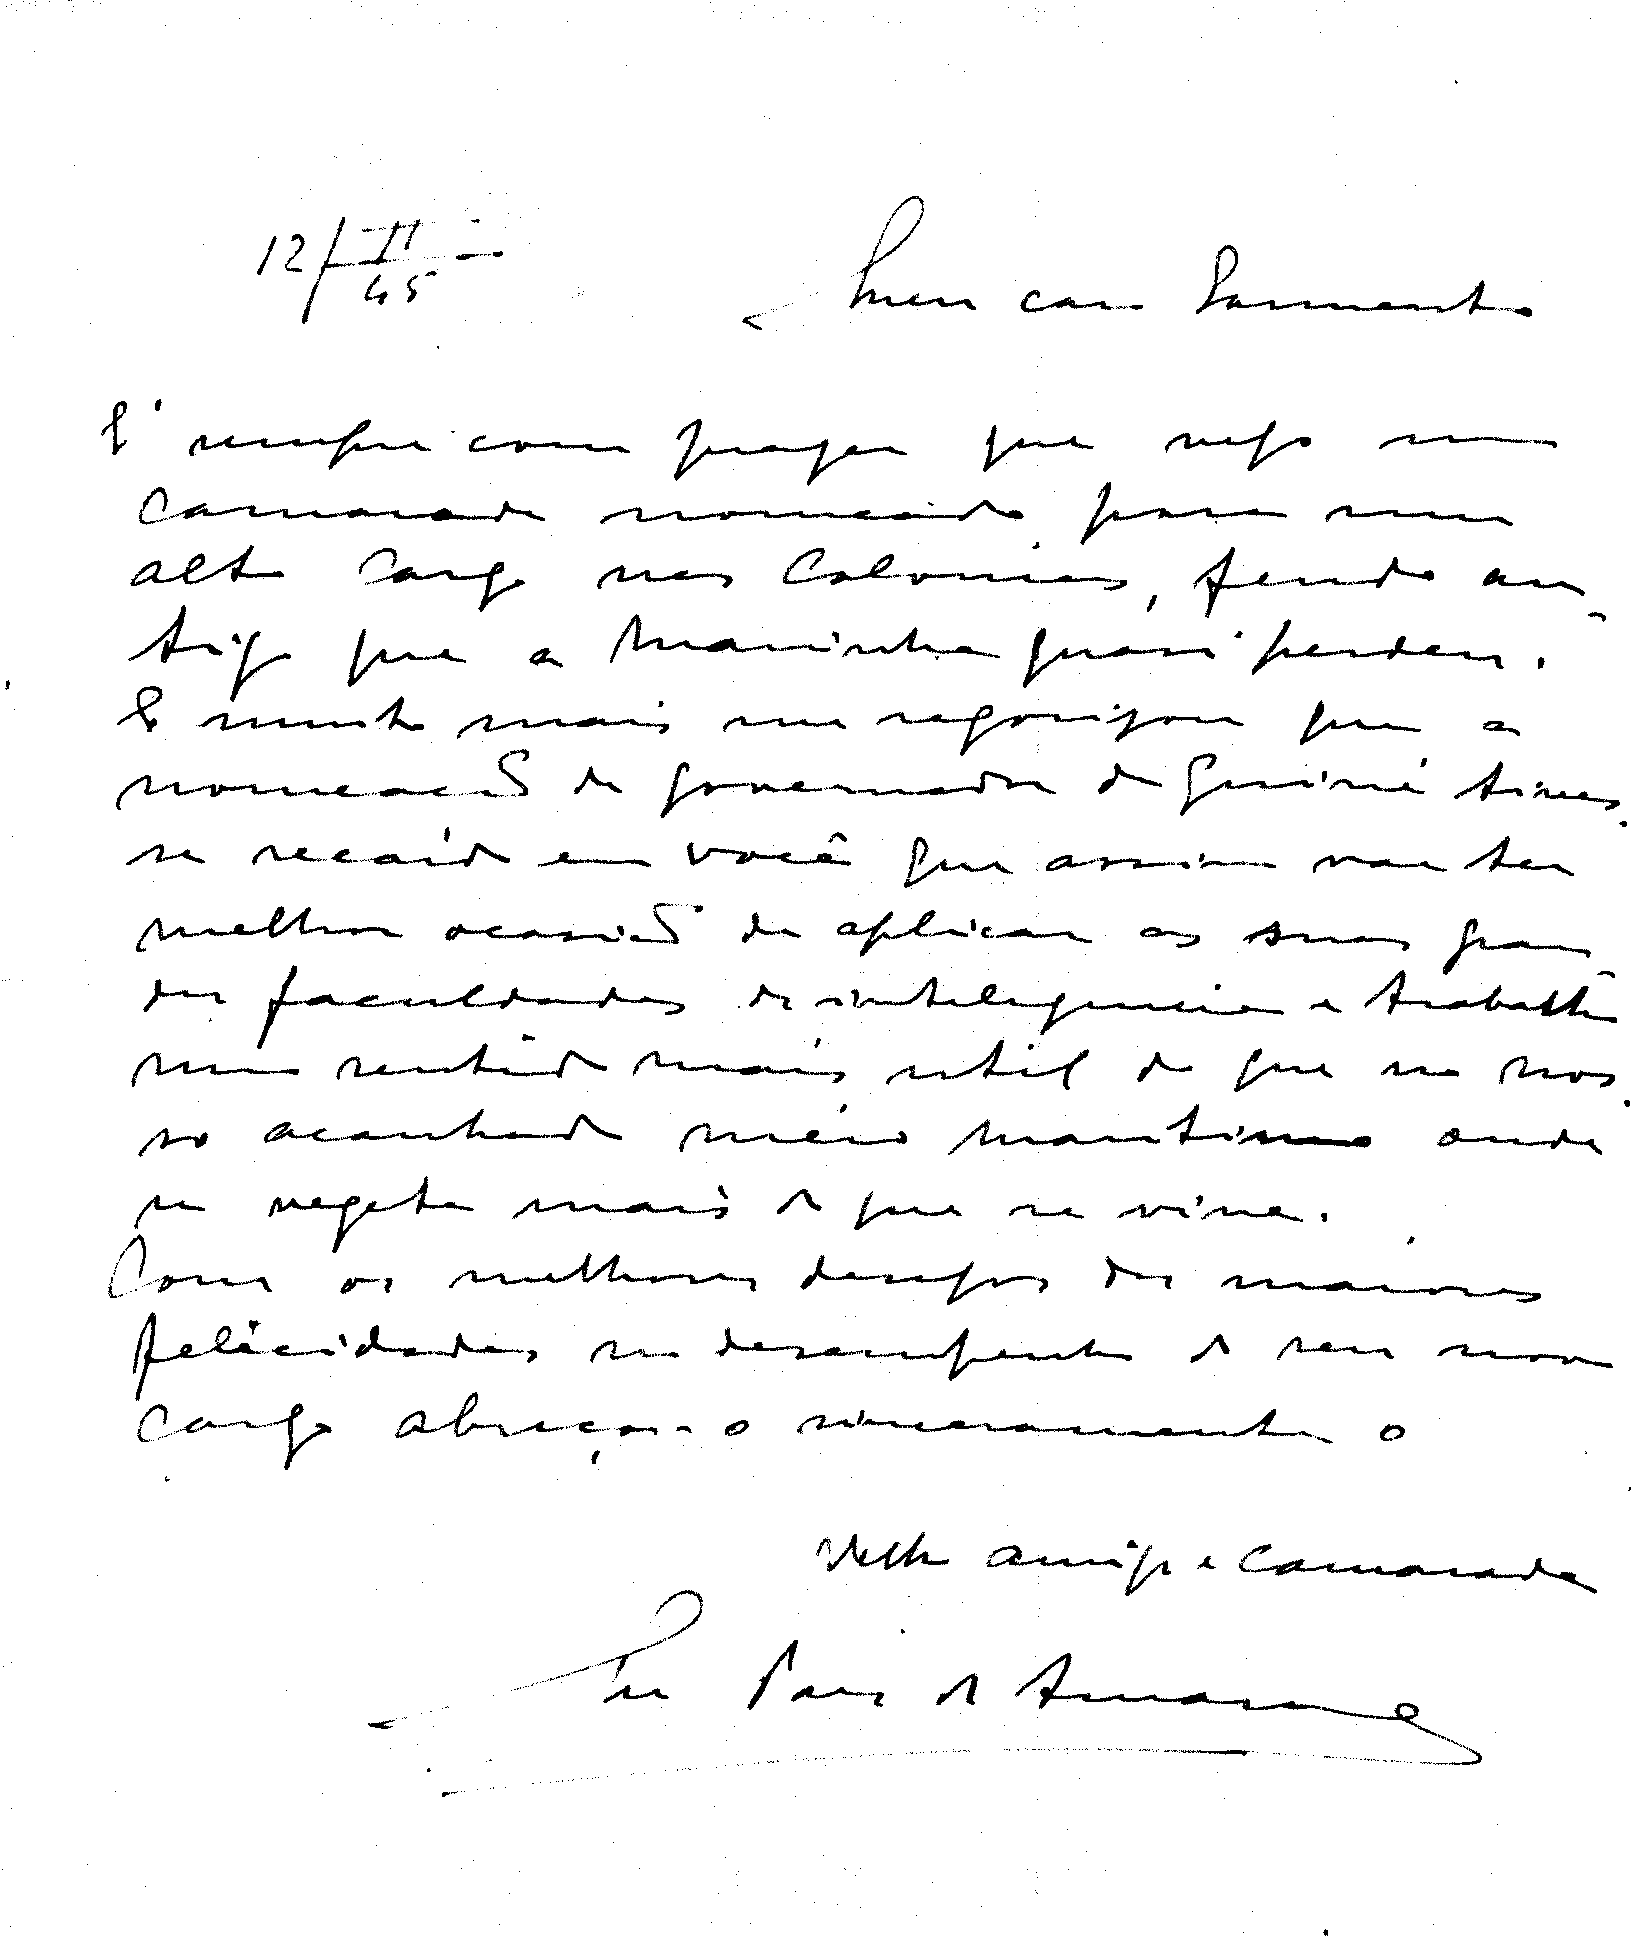 12/II/45
Meu caro Sarmento
É sempre com prazer que vejo um
camarada nomeado para um
alto cargo nas Colonias, feudo an-
tigo que a Marinha quasi perdeu.
E muito mais me regosijou que a
nomeação de governador da Guiné tives-
se recaído em você que assim vae ter
melhor ocasião de aplicar as suas gran-
des faculdades de inteligencia e trabalho
num sentido mais util do que no nos-
so acanhado meio maritimo onde
se vegeta mais do que se vive.
Com os melhores desejos das maiores
felicidades no desempenho do seu novo
cargo abraça-o sinceramente o
velho amigo e camarada
Pais do Amaral